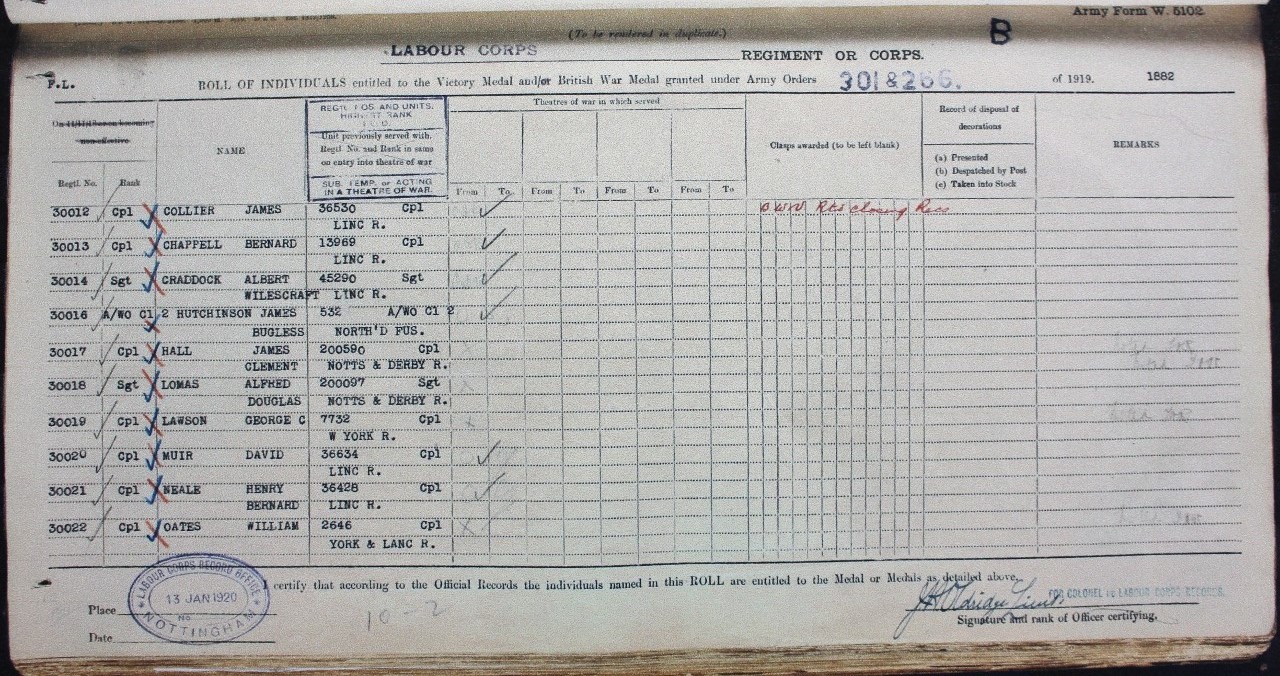 Army Form W. 5102
B
(To be rendered in duplicate.)
LABOUR CORPS REGIMENT OR CORPS.
P.L. ROLL OF INDIVIDUALS entitled to the Victory Medal and/or British War Medal granted under Army Orders 301 & 266. of 1919. 1882
On 11/11/18 or on becoming non-effective
Regtl. No. Rank
NAME
REGTL NOS AND UNITS.
HIGHEST RANK
Unit previously served with.
Regtl. No. and Rank in same
on entry into theatre of war
SUB. TEMP. or ACTING
IN A THEATRE OF WAR.
Theatres of war in which served
From To From To From To From To
Clasps awarded (to be left blank)
Record of disposal of
decorations
(a) Presented
(b) Despatched by Post
(c) Taken into Stock
REMARKS
30012 Cpl COLLIER JAMES 36530 Cpl
LINC R.
30013 Cpl CHAPPELL BERNARD 13969 Cpl
LINC R.
30014 Sgt CRADDOCK ALBERT 45290 Sgt
WILESCRAFT LINC R.
30016 A/WO Cl 2 HUTCHINSON JAMES 532 A/WO Cl 2
BUGLESS NORTH'D FUS.
30017 Cpl HALL JAMES 200590 Cpl
CLEMENT NOTTS & DERBY R.
30018 Sgt LOMAS ALFRED 200097 Sgt
DOUGLAS NOTTS & DERBY R.
30019 Cpl LAWSON GEORGE C 7732 Cpl
W YORK R.
30020 Cpl MUIR DAVID 36634 Cpl
LINC R.
30021 Cpl NEALE HENRY 36428 Cpl
BERNARD LINC R.
30022 Cpl OATES WILLIAM 2646 Cpl
YORK & LANC R.
I certify that according to the Official Records the individuals named in this ROLL are entitled to the Medal or Medals as detailed above.
LABOUR CORPS RECORD OFFICE
13 JAN 1920
No.
NOTTINGHAM
Place
Date
10-2
FOR COLONEL i/c LABOUR CORPS RECORDS.
Signature and rank of Officer certifying.